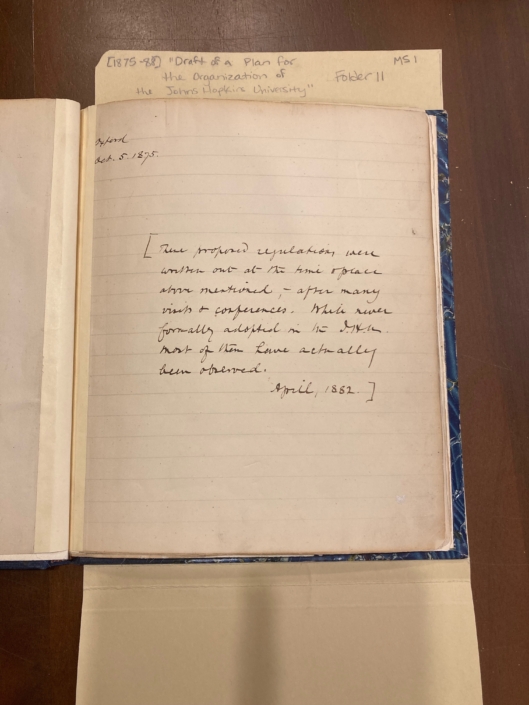 [1875-8?] "Draft of a Plan for MS 1
the Organization of Folder 11
the Johns Hopkins University"
Oxford
Oct. 5. 1875.
[ These proposed regulations were
written out at the time & place
above mentioned, - after many
visits & conferences. While never
formally adopted in the J.H.U.
most of them have actually
been observed.
April, 1882. ]